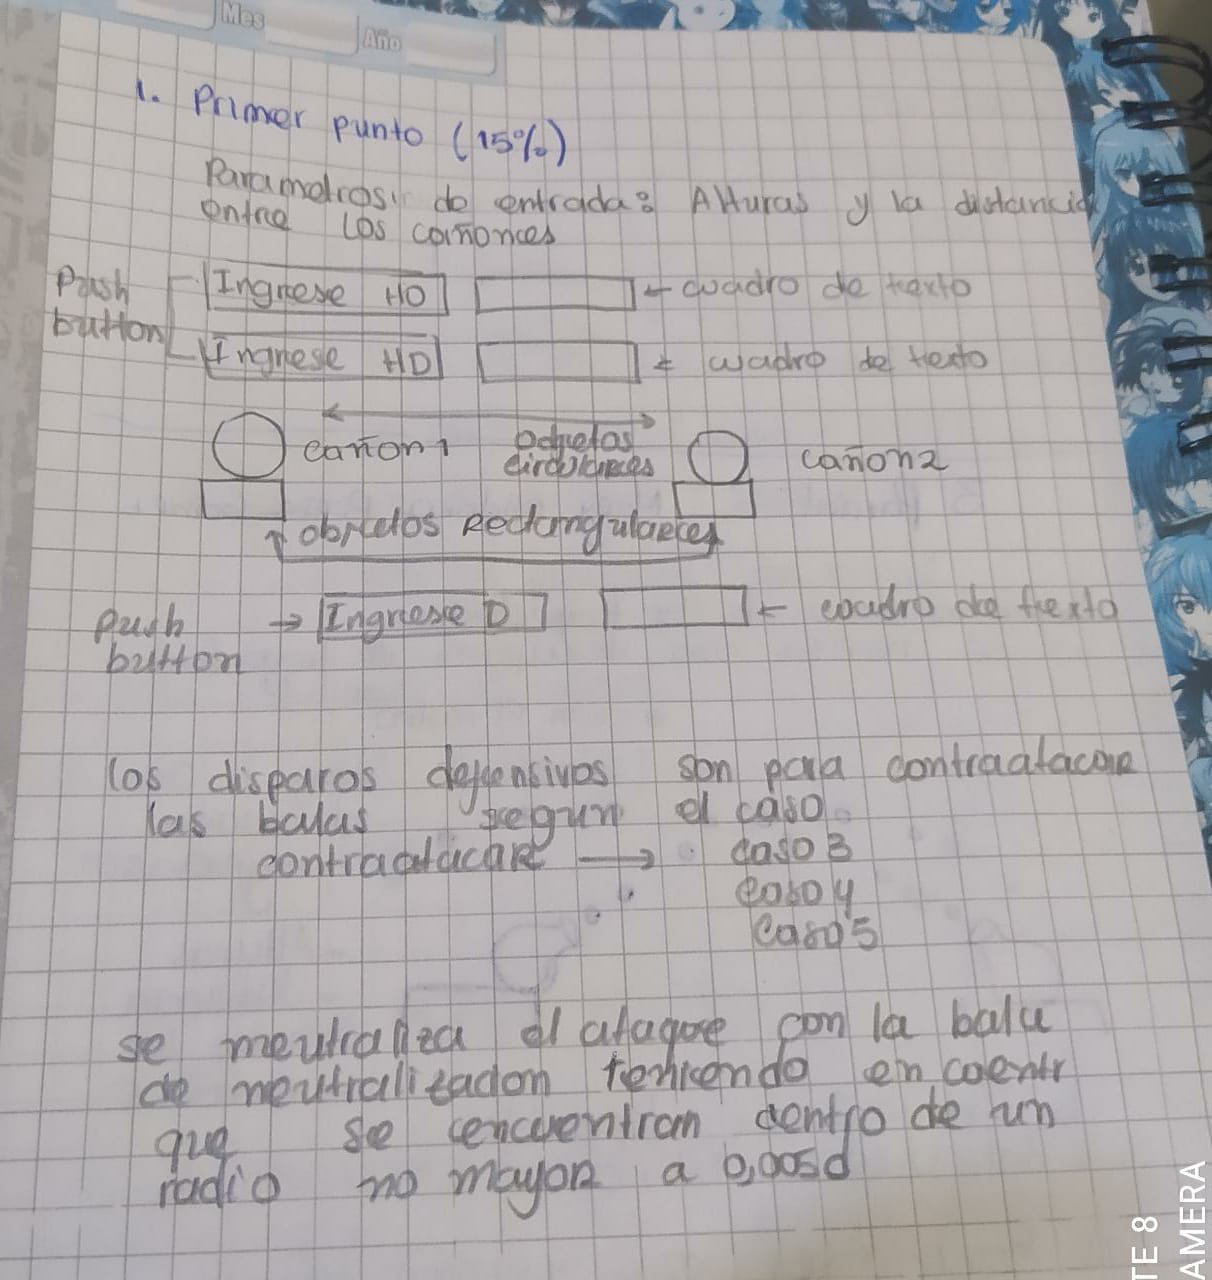 Mes
Año
1. Primer punto (15%)
Parametros de entrada: Alturas y la distancia
entre los cañones
Push
button
Ingrese HO
← cuadro de texto
Ingrese HD
← cuadro de texto
cañon 1
objetos
circulares
cañon 2
↑ objetos Rectangulares
push
button
→ Ingrese D
← cuadro de texto
los disparos defensivos son para contraatacar
las balas segun el caso
contraatacar → caso 3
caso 4
caso 5
se neutraliza el ataque con la bala
de neutralizacion teniendo en cuenta
que se encuentran dentro de un
radio no mayor a 0,005d
TE 8
AMERA